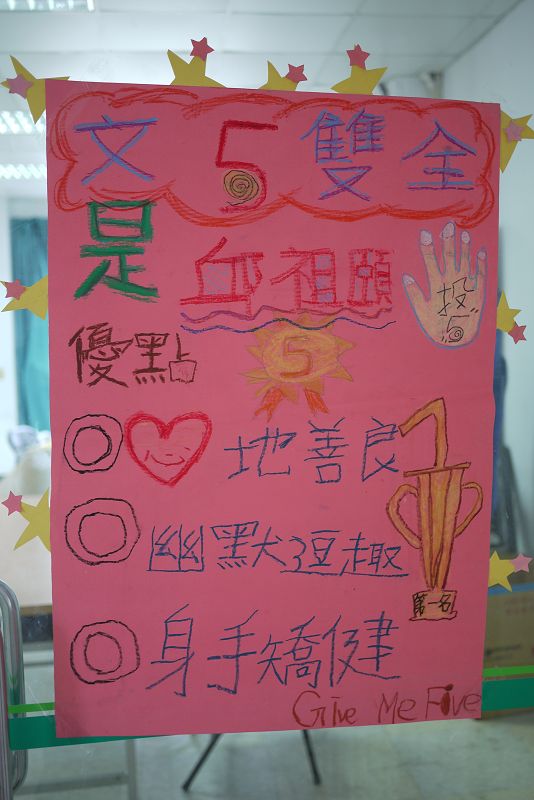 文5雙全
是邱祖頤
投5
優點
5
地善良
1
幽默逗趣
第一名
身手矯健
Give Me Five